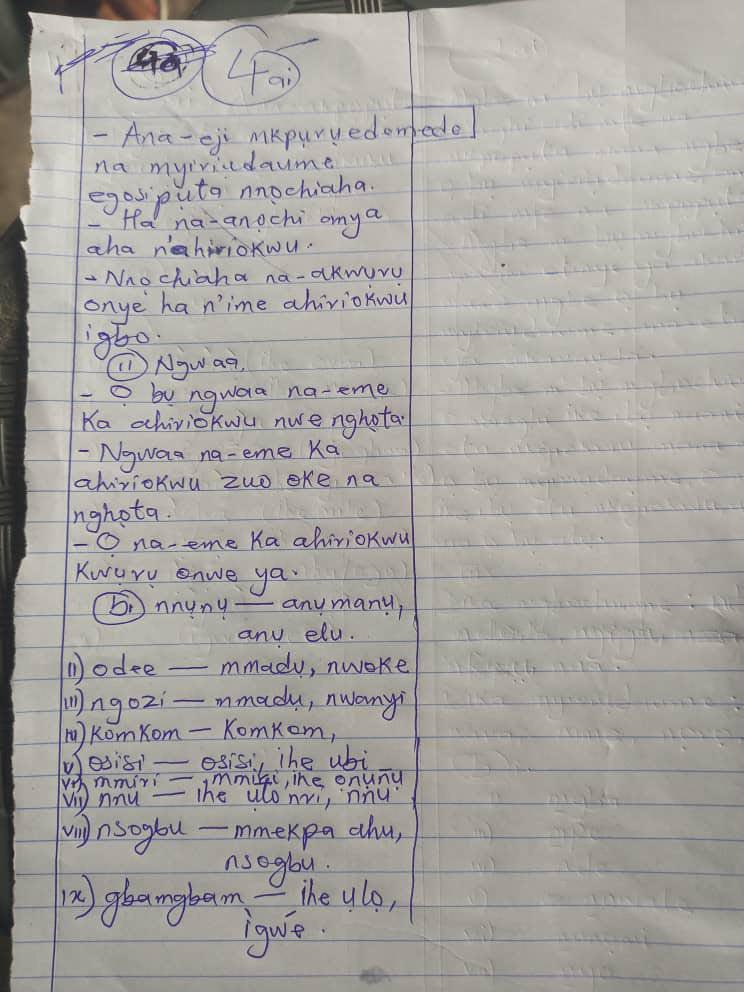 4ai
- Ana-eji mkpụrụedemede
na myiriụdaume
egosipụta nnọchiaha.
- Ha na-anọchi onya
aha n'ahiriokwu.
- Nnọchiaha na-akwụrụ
onye ha n'ime ahiriokwu
igbo.
(ii) Ngwaa.
- Ọ bụ ngwaa na-eme
ka ahiriokwu nwe nghọta.
- Ngwaa na-eme ka
ahiriokwu zuo oke na
nghọta.
- Ọ na-eme ka ahiriokwu
kwụrụ onwe ya.
(bi) nnụnụ — anụmanụ,
anụ elu.
ii) odee — mmadụ, nwoke
iii) ngozi — mmadụ, nwanyi
iv) komkom — komkom,
v) osisi — osisi, ihe ubi
vi) mmiri — mmiri, ihe ọnụnụ
vii) nnu — ihe ụlo nri, nnu
viii) nsogbu — mmekpa ahụ,
nsogbu.
ix) gbamgbam — ihe ụlọ,
ìgwé.